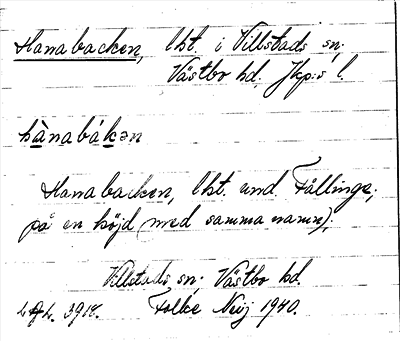 Hanabacken, lht. i Villstads sn;
Västbo hd. Jkp:s l.
hànabákən
Hanabacken, lht. und Fållinge;
på en höjd (med samma namn);
Villstads sn; Västbo hd.
3918. Folke Neij 1940.